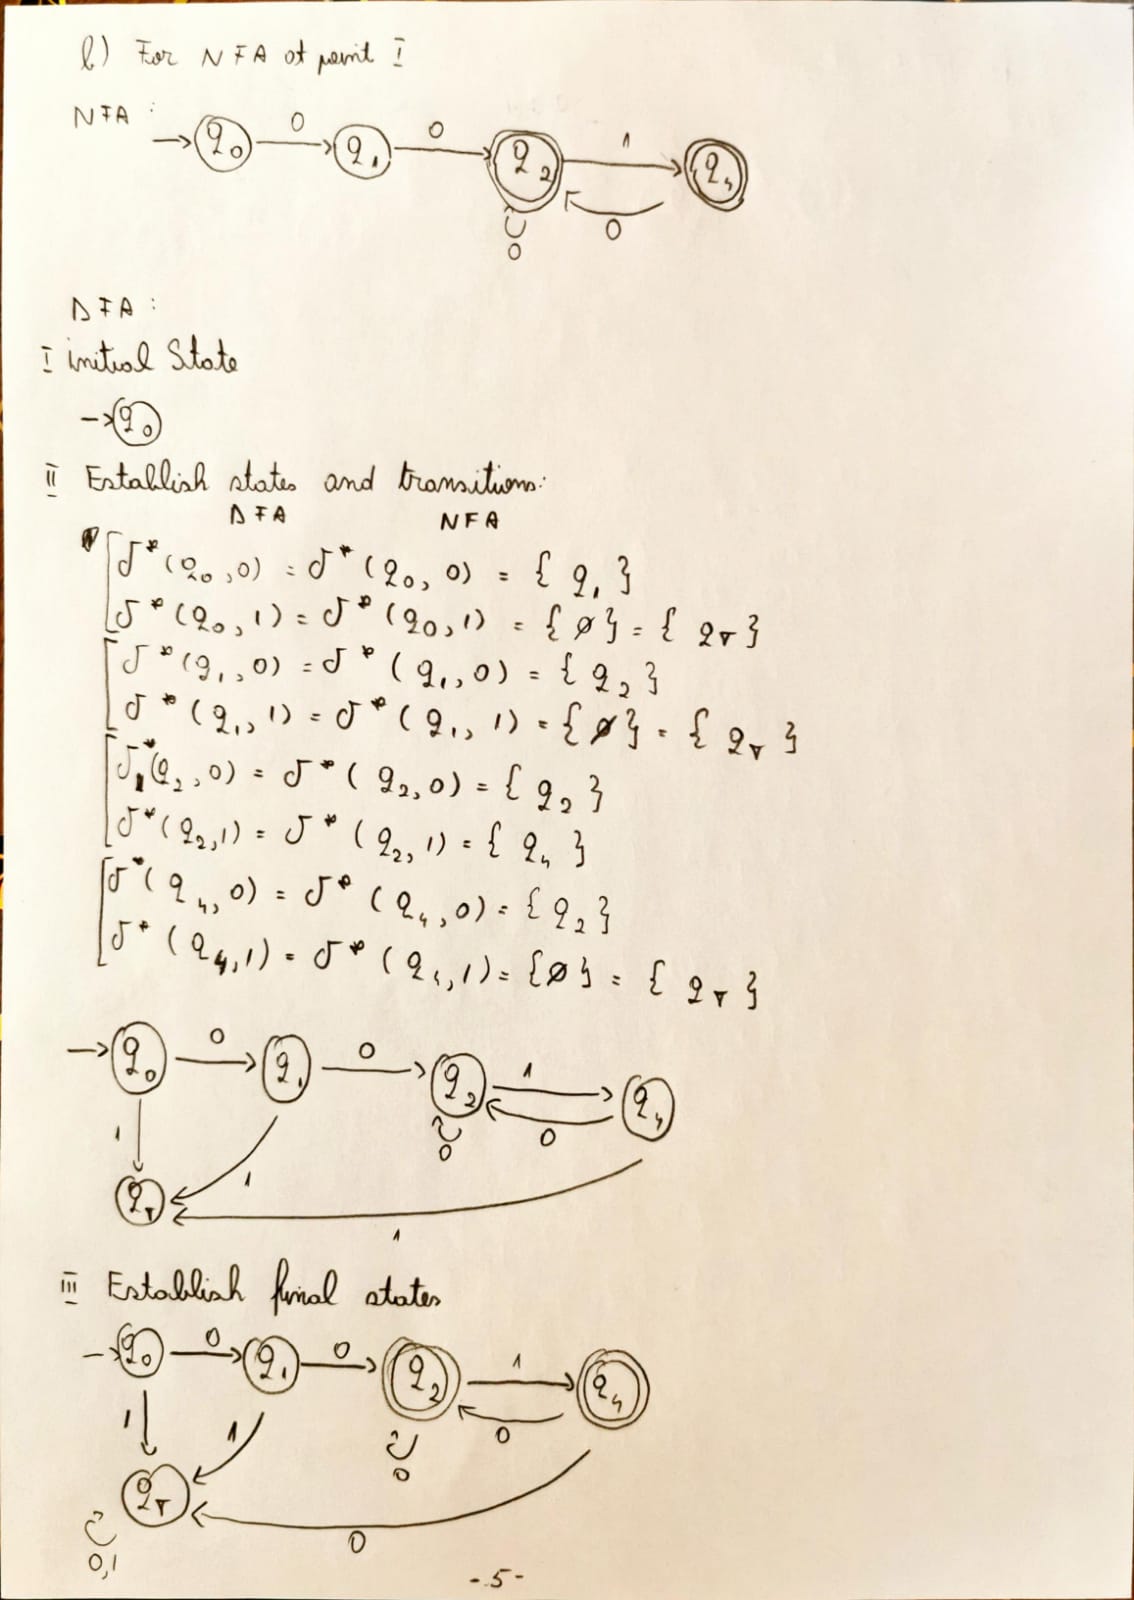 b) For NFA at point I
NFA :
→ q0 0 q1 0 q2 1 q4
0 0
DFA :
I initial State
→ q0
II Establish states and transitions:
DFA NFA
δ*(q0,0) = δ*(q0, 0) = { q1 }
δ*(q0,1) = δ*(q0,1) = {∅} = { qT }
δ*(q1,0) = δ*(q1,0) = { q2 }
δ*(q1,1) = δ*(q1,1) = {∅} = { qT }
δ*(q2,0) = δ*(q2,0) = { q2 }
δ*(q2,1) = δ*(q2,1) = { q4 }
δ*(q4,0) = δ*(q4,0) = { q2 }
δ*(q4,1) = δ*(q4,1) = {∅} = { qT }
→ q0 0 q1 0 q2 1 q4
0 0
1 1
qT
1
III Establish final states
→ q0 0 q1 0 q2 1 q4
0
1 1 0
qT
0
0,1
- 5 -